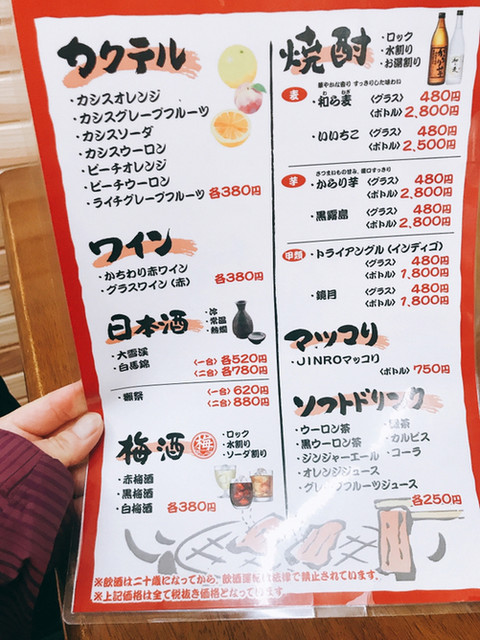 カクテル
・カシスオレンジ
・カシスグレープフルーツ
・カシスソーダ
・カシスウーロン
・ピーチオレンジ
・ピーチウーロン
・ライチグレープフルーツ 各380円
ワイン
・かちわり赤ワイン
・グラスワイン（赤） 各380円
日本酒
・冷
・常温
・熱燗
・大雪渓 〈一合〉各520円
・白馬錦 〈二合〉各780円
・獺祭 〈一合〉620円
〈二合〉880円
梅酒
梅
・ロック
・水割り
・ソーダ割り
・赤梅酒
・黒梅酒
・白梅酒 各380円
焼酎
・ロック
・水割り
・お湯割り
華やかな香り すっきりした味わい
麦 ・和ら麦 〈グラス〉 480円
〈ボトル〉 2,800円
・いいちこ 〈グラス〉 480円
〈ボトル〉 2,500円
さつまいもの甘み、後口すっきり
芋 ・からり芋 〈グラス〉 480円
〈ボトル〉 2,800円
・黒霧島 〈グラス〉 480円
〈ボトル〉 2,800円
甲類 ・トライアングル（インディゴ）
〈グラス〉 480円
〈ボトル〉 1,800円
・鏡月 〈グラス〉 480円
〈ボトル〉 1,800円
マッコリ
・JINROマッコリ
〈ボトル〉 750円
ソフトドリンク
・ウーロン茶
・黒ウーロン茶
・ジンジャーエール
・オレンジジュース
・グレープフルーツジュース
・カルピス
・コーラ
各250円
※飲酒は二十歳になってから。飲酒運転は法律で禁止されています。
※上記価格は全て税抜き価格となっています。